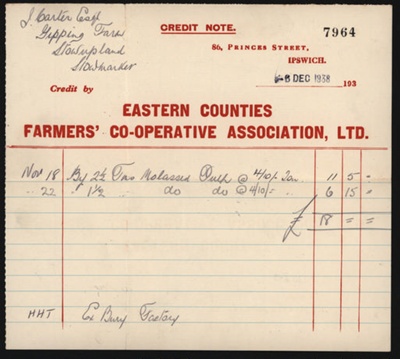 J. Carter Esq
Gipping Farm
Stowupland
Stowmarket
CREDIT NOTE.
7964
86, PRINCES STREET,
IPSWICH.
-8 DEC 1938
193
Credit by
EASTERN COUNTIES
FARMERS' CO-OPERATIVE ASSOCIATION, LTD.
Nov 18 By 2½ Tons Molassed Pulp @ 4/10/- Ton 11 5 "
" 22 " 1½ " do do @ 4/10/- 6 15 "
£ 18 = =
HHT Ex Bury Factory